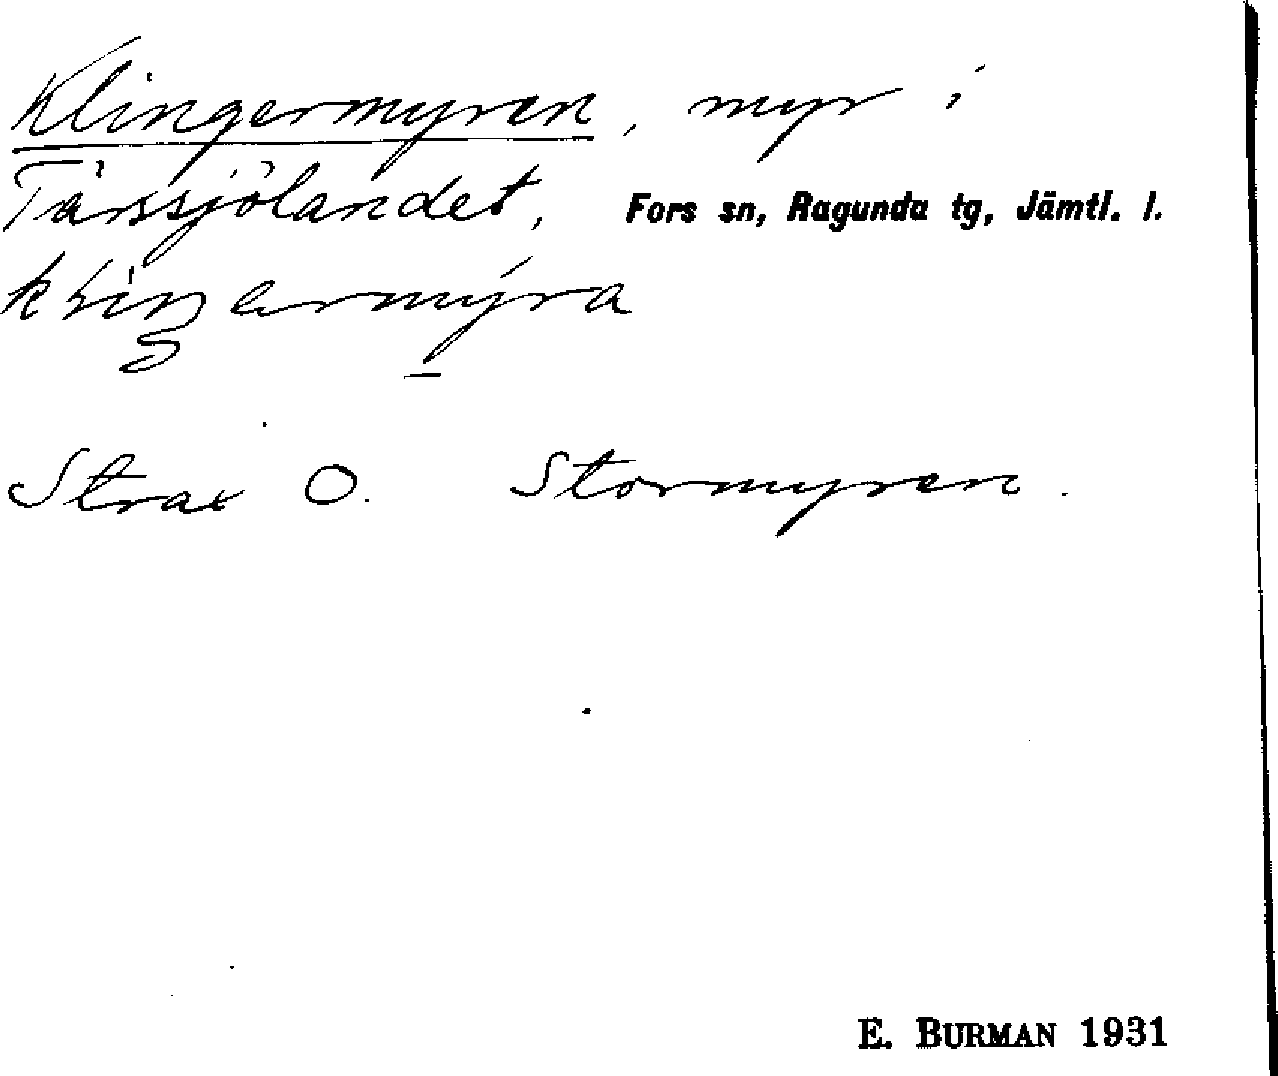 Klingermyren, myr i
Tårssjölandet, Fors sn, Ragunda tg, Jämtl. l.
Strax O. Stormyren.
E. BURMAN 1931